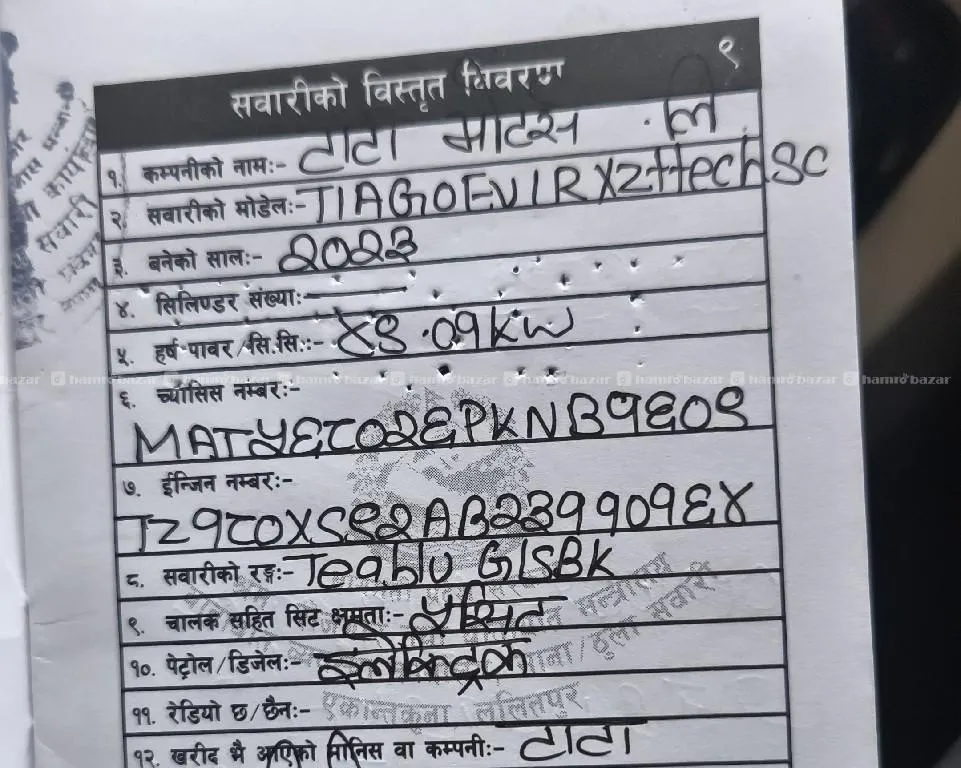 सवारीको विस्तृत विवरण ९
१. कम्पनीको नामः- टाटा मोटर्स .लि
२. सवारीको मोडेलः- TIAGOEV1RXZ+techSC
३. बनेको सालः- २०२३
४. सिलिण्डर संख्याः-
५. हर्ष पावर/सि.सि.ः- ४५.०९KW
६. च्यासिस नम्बरः-
MAT५६८०२६PKNB१६०९
७. ईन्जिन नम्बरः-
८. सवारीको रङ्गः- Teablu GlSBK
९. चालक सहित सिट क्षमताः- ५ सित
१०. पेट्रोल/डिजेलः- इलेक्ट्रिक
११. रेडियो छ/छैनः-
१२. खरीद भै आएको मानिस वा कम्पनीः- टाटा
एकान्तकुना ललितपुर
hamrobazar hamrobazar hamrobazar hamrobazar hamrobazar hamrobazar hamrobazar hamrobazar